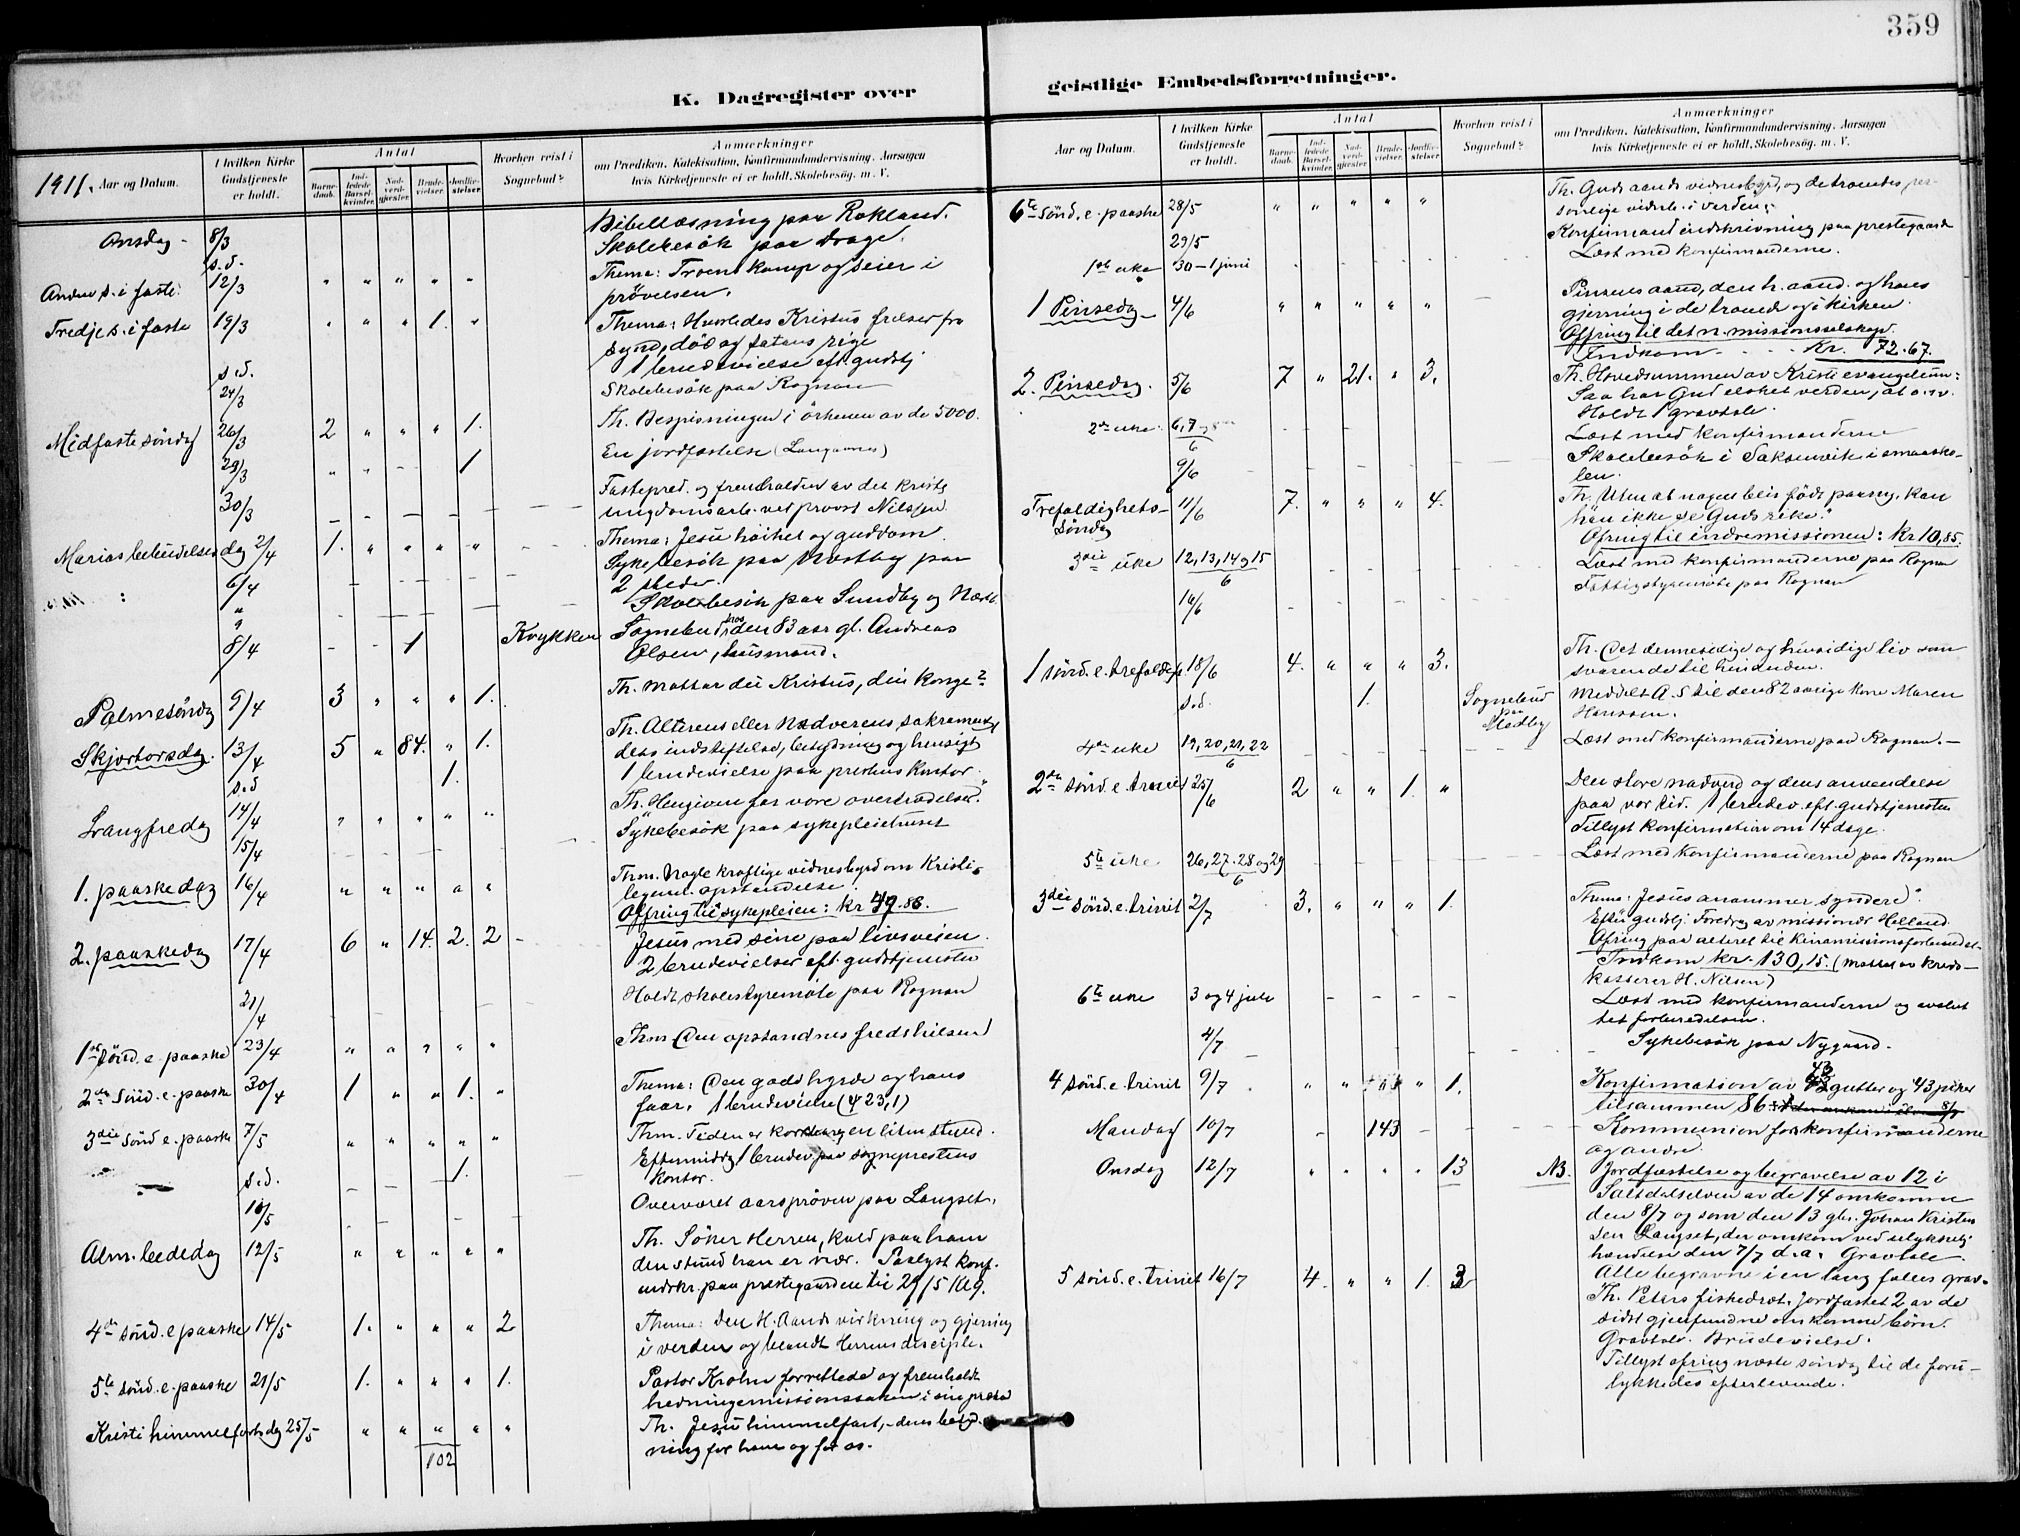 359
K. Dagregister over
geistlige Embedsforretninger.
1911. Aar og Datum.
I hvilken Kirke Gudstjeneste er holdt.
Antal
Barnedaab.
Indledede Barselkvinder.
Nadverdgjester.
Brudevielser.
Jordfæstelser.
Hvorhen reist i Sognebud?
Anmærkninger
om Prædiken, Katekisation, Konfirmandundervisning, Aarsagen
hvis Kirketjeneste ei er holdt, Skolebesög. m. V.
Onsdag 8/3 Bibellæsning paa Rokland.
s.d. Skolebesök paa Drage.
Anden s. i faste 12/3 " " " " " Thema: Troens kamp og seier i
prövelsen.
Tredje s. i faste 19/3 " " " 1. " Thema: Hvorledes Kristus frelser fra
synd, död og satans rige
s.d. 1 brudevielse eft. gudstj
24/3 Skolebesök paa Rognan
Midfaste söndag 26/3 2 " " " 1. Th. Bespisningen i örkenen av de 5000.
29/3 " " " - 1 En jordfæstelse (Langaanes)
30/3 Fastepræd. og fremholden av det kristl.
ungdomsarb. ved provst Nilssen
Marias bebudelsesdag 2/4 1. " " " " Thema: Jesu höihet og guddom.
6/4 Sykebesök paa Næstby paa
2 steder.
" Skolebesök paa Sundby og Næstb.
8/4 - - 1 Kvykken Sognebud hos den 83 aar gl. Andreas
Olsen, husmand.
Palmesöndag 9/4 3 " " " 1. Th. Mottar du Kristus, din konge?
Skjærtorsdag. 13/4 5 " 84. " 1. Th. Alterens eller Nadverens sakramente,
dets indstiftelse, betydning og hensigt
s.d 1. 1 brudevielse paa prestens kontor.
Langfredag 14/4 " " " " " Th. "Hengiven for vore overtrædelser."
15/4 Sykebesök paa sykepleiehuset
1. paaskedag 16/4 " " " " " Thm. Nogle kraftige vidnesbyrd om Kristi
legeml. opstandelse.
Offring til sykepleien: kr 49.88.
2. paaskedag 17/4 6 " 14. 2. 2 - Jesus med sine paa livsveien.
2 brudevielser eft. gudstjenesten
21/4 Holdt skolestyremöte paa Rognan
1ste sönd. e. paaske 23/4 " " " " " Thm. Den opstandnes fredshilsen
2den sönd. e. paaske 30/4 1 " " 1. " Thema: Den gode hyrde og hans
faar. 1 brudevielse (4 23,1)
3die sönd e. paaske 7/5 " " " " " Thm. Tiden er kort en liten stund.
s.d. 1. Eftermiddag 1 brudev. paa sogneprestens
kontor.
10/5 Overværet aarspröven paa Langset.
Alm. bededag 12/5 " " " " " Th. Söker Herren, kald paa ham
den stund han er nær. Paalyst konf.
indskr. paa prestegaarden til 29/5 Kl 9.
4de sönd e paaske 14/5 1. " " " 2 Thema: Den H. Aands virkning og gjerning
i verden og blandt Herrens disciple.
5te sönd. e. paaske 21/5 1. " " " 1. Pastor Krohn forrettede og fremholdt
hedningemissionssaken i sin præd
Kristi himmelfartsdag 25/5 " " " " " Th. Jesu himmelfart, - dens betyd-
ning for ham og for os.
102
Aar og Datum.
I hvilken Kirke Gudstjeneste er holdt.
Antal
Barnedaab.
Indledede Barselkvinder.
Nadverdgjester.
Brudevielser.
Jordfæstelser.
Hvorhen reist i Sognebud?
Anmærkninger
om Prædiken, Katekisation, Konfirmandundervisning, Aarsagen
hvis Kirketjeneste ei er holdt, Skolebesög. m. V.
6te sönd. e. paaske 28/5 " " " " " Th. Guds aands vidnesbyrd, og de troendes per-
sonlige vidnesb. i verden.
29/5 Konfirmandindskrivning paa prestegaard
1ste uke 30 - 1 juni Læst med konfirmanderne.
1 Pinsedag 4/6 " " " " " Pinsens aand, den h. aand. og hans
gjerning i de troende og i kirken.
Offring til det n. missionsselskap.
Indkom . . . Kr. 72.67.
2. Pinsedag. 5/6 7 " 21. " 3. Th. Hovedsummen av Kristi evangelium:
Saa har Gud elsket verden, at o.s.v.
Holdt 1 gravtale.
2den uke. 6, 7 og 8/6 Læst med konfirmanderne
9/6 Skolebesök i Saksenvik i smaasko-
len.
Trefoldigheds-söndag 11/6 7. " " " 4. Th. "Uten at nogen blir födt paany, kan
han ikke se Guds rike".
Ofring til indremissionen: kr 10,85.
3die uke 12, 13, 14 og 15/6 Læst med konfirmanderne paa Rognan
16/6 Fattigstyremöte paa Rognan
1 sönd. e. trefoldigh. 18/6 4. " " " 3. Th. Det dennesidige og hinsidige liv som
svarende til hinanden.
s.d. 1. Sognebud paa Medby Meddelt A. S til den 82 aarige kone Maren
Hanssen.
4de uke 19, 20, 21, 22/6 Læst med konfirmanderne paa Rognan. -
2den sönd. e. trinit 25/6 2 " " 1. " Den store nadverd og dens anvendelse
paa vor tid. 1 brudev. eft. gudstjenesten
Tillyst konfirmation om 14 dage.
5te uke 26, 27. 28 og 29/6 Læst med konfirmanderne paa Rognan
3die sönd e. trinit 2/7 3. " " " 1. Thema: "Jesus anammer syndere".
Efter gudstj. Foredrag av missionær Helland.
Ofring paa alteret til Kinamissionsforbundet.
Indkom kr. 130,15. (Mottat av kreds-
kasserer H. Nilsen)
6te uke 3 og 4 juli Læst med konfirmanderne og avslut
tet forberedelsen.
4/7 Sykebesök paa Nygaard.
4 sönd. e. trinit 9/7 " " " 1. Konfirmation av 43 gutter og 43 piker
tilsammen 86
Mandag 10/7 - 143 Kommunion for konfirmanderne
og andre.
Onsdag 12/7 " " " " 13 NB. Jordfæstelse og begravelse av 12 i
Saltdalselven av de 14 omkomne
den 8/7 og som den 13 gbr. Johan Kristen
sen Langset, der omkom ved ulykkelig
hændelse den 7/7 d.a. Gravtale.
Alle begravne i en lang fælles grav.
5 sönd. e. trinit 16/7 4. " " 1. 3 Th. Peters fiskedræt. Jordfæstet 2 av de
sidst gjenfundne omkomne börn.
Gravtale. Brudevielse.
Tillyst ofring næste söndag til de foru-
lykkedes efterlevende.